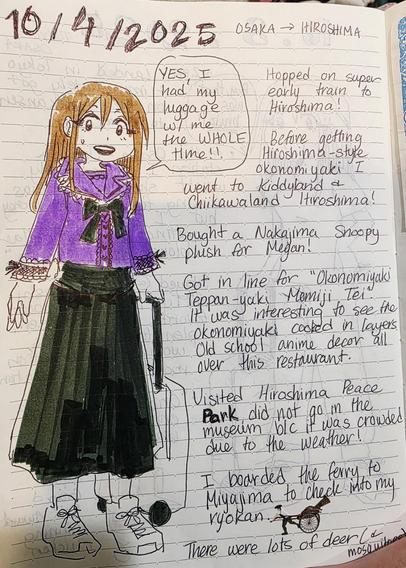 10/4/2025
OSAKA → HIROSHIMA
YES, I
had my
luggage
w/ me
the WHOLE
time!!
Hopped on super
early train to
Hiroshima!
Before getting
Hiroshima-style
okonomiyaki I
went to Kiddyland &
Chiikawaland Hiroshima!
Bought a Nakajima Snoopy
plush for Megan!
Got in line for "Okonomiyaki
Teppan-yaki Momiji Tei".
It was interesting to see the
okonomiyaki cooked in layers.
Old school anime decor all
over this restaurant.
Visited Hiroshima Peace
Park did not go in the
museum b/c it was crowded
due to the weather!
I boarded the ferry to
Miyajima to check into my
ryokan.
There were lots of deer (&
mosquitoes)